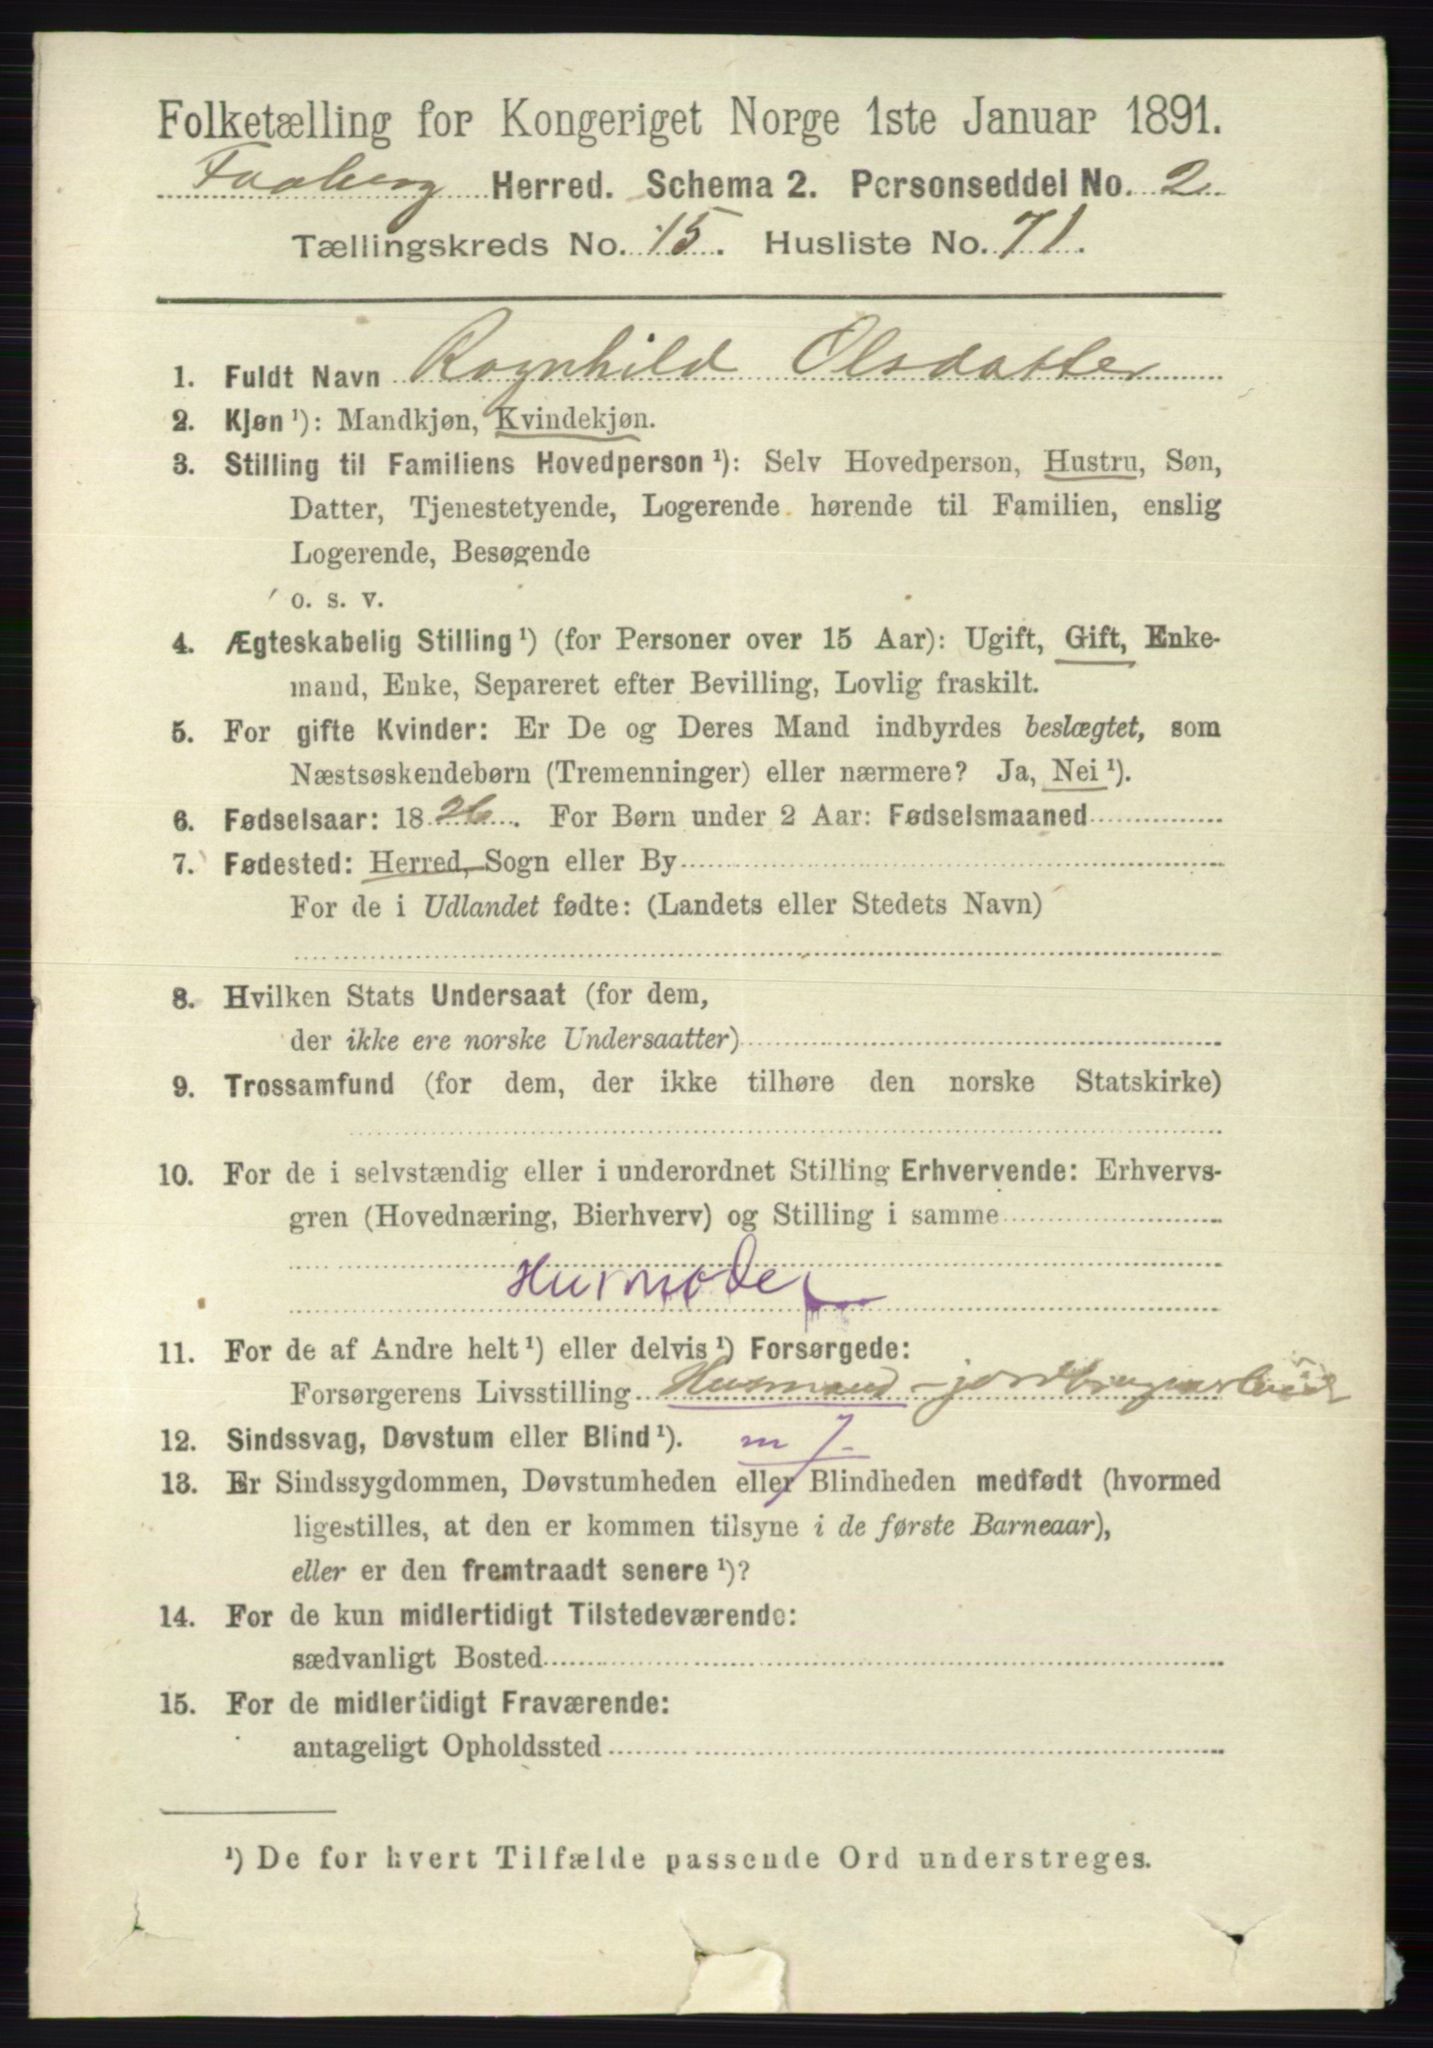 Folketælling for Kongeriget Norge 1ste Januar 1891.
Faaberg Herred. Schema 2. Personseddel No. 2.
Tællingskreds No. 15. Husliste No. 71.
1. Fuldt Navn Ragnhild Olsdatter
2. Kjøn ¹): Mandkjøn, Kvindekjøn.
3. Stilling til Familiens Hovedperson ¹): Selv Hovedperson, Hustru, Søn,
Datter, Tjenestetyende, Logerende hørende til Familien, enslig
Logerende, Besøgende
o. s. v.
4. Ægteskabelig Stilling ¹) (for Personer over 15 Aar): Ugift, Gift, Enke-
mand, Enke, Separeret efter Bevilling, Lovlig fraskilt.
5. For gifte Kvinder: Er De og Deres Mand indbyrdes beslægtet, som
Næstsøskendebørn (Tremenninger) eller nærmere? Ja, Nei ¹).
6. Fødselsaar: 1826. For Børn under 2 Aar: Fødselsmaaned
7. Fødested: Herred, Sogn eller By
For de i Udlandet fødte: (Landets eller Stedets Navn)
8. Hvilken Stats Undersaat (for dem,
der ikke ere norske Undersaatter)
9. Trossamfund (for dem, der ikke tilhøre den norske Statskirke)
10. For de i selvstændig eller i underordnet Stilling Erhvervende: Erhvervs-
gren (Hovednæring, Bierhverv) og Stilling i samme
Husmoder
11. For de af Andre helt ¹) eller delvis ¹) Forsørgede:
Forsørgerens Livsstilling Husmand -
12. Sindssvag, Døvstum eller Blind ¹). m 7
13. Er Sindssygdommen, Døvstumheden eller Blindheden medfødt (hvormed
ligestilles, at den er kommen tilsyne i de første Barneaar),
eller er den fremtraadt senere ¹)?
14. For de kun midlertidigt Tilstedeværende:
sædvanligt Bosted
15. For de midlertidigt Fraværende:
antageligt Opholdssted
¹) De for hvert Tilfælde passende Ord understreges.